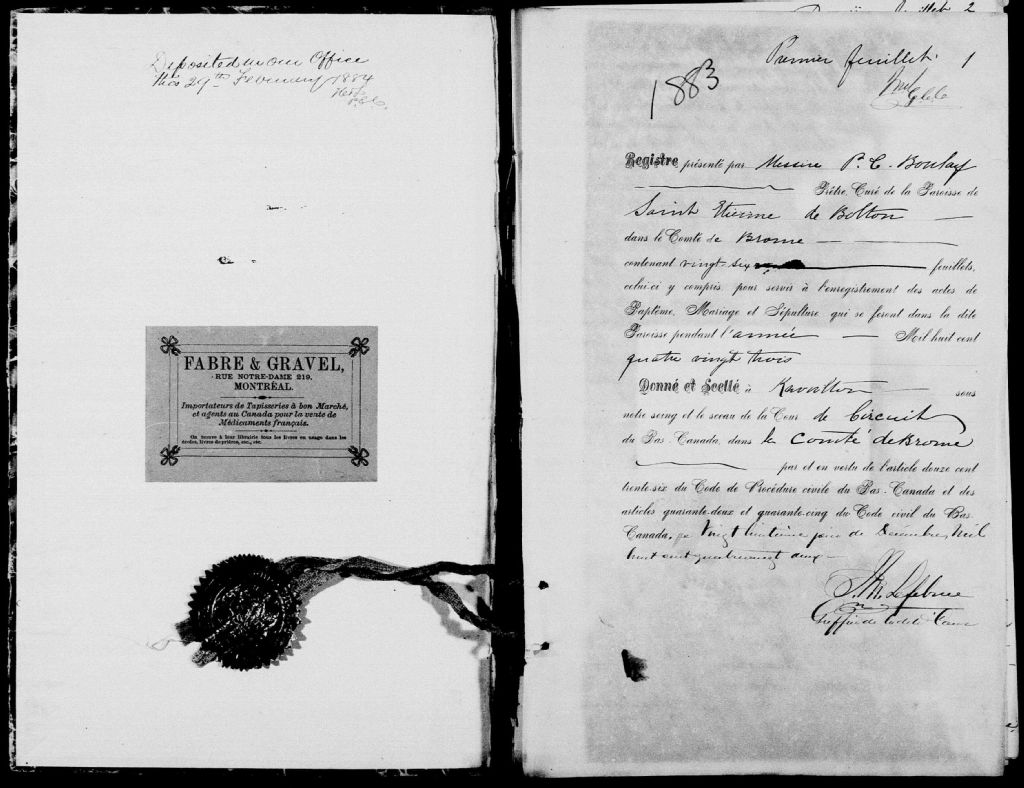 Deposited in our Office
this 29th February 1884
FABRE & GRAVEL,
RUE NOTRE-DAME 219,
MONTRÉAL.
Importateurs de Tapisseries à bon Marché,
et agents au Canada pour la vente de
Médicaments français.
On trouve à leur librairie tous les livres en usage dans les
écoles, livres de prières, etc., etc.
Premier feuillet. 1
1883
Registre présenté par Messire P. C. Boulay
Prêtre, Curé de la Paroisse de
Saint Etienne de Bolton
dans le Comté de Brome
contenant vingt-six feuillets,
celui-ci y compris, pour servir à l'enregistrement des actes de
Baptême, Mariage et Sépulture, qui se feront dans la dite
Paroisse pendant l'année Mil huit cent
quatre vingt trois
Donné et Scellé à sous
notre seing et le sceau de la Cour de Circuit
du Bas-Canada, dans le Comté de Brome
par et en vertu de l'article douze cent
trente-six du Code de Procédure civile du Bas-Canada et des
articles quarante-deux et quarante-cinq du Code civil du Bas-
Canada, ce vingt huitième jour de Décembre, Mil
huit cent quatrevingt deux
Lefebvre
Greffier de la dite Cour